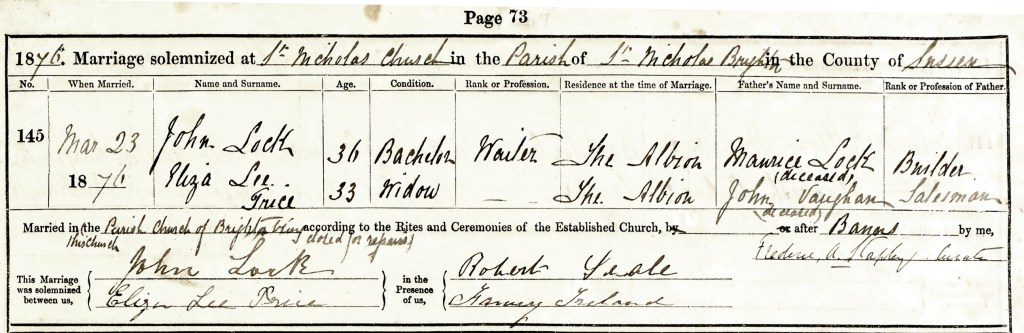 Page 73
1876. Marriage solemnized at St. Nicholas Church in the Parish of St. Nicholas Brighton in the County of Sussex
No. When Married. Name and Surname. Age. Condition. Rank or Profession. Residence at the time of Marriage. Father's Name and Surname. Rank or Profession of Father.
145 Mar 23 John Lock 36 Bachelor Waiter The Albion Maurice Lock Builder
(deceased)
1876 Eliza Lee Price 33 Widow — The Albion John Vaughan Salesman
(deceased)
Married in the Parish Church of Brighton being according to the Rites and Ceremonies of the Established Church, by or after Banns by me,
this church closed for repairs Frederic A. Stapley Curate
This Marriage was solemnized between us, John Lock in the Presence of us, Robert Seale
Eliza Lee Price Fanny Ireland